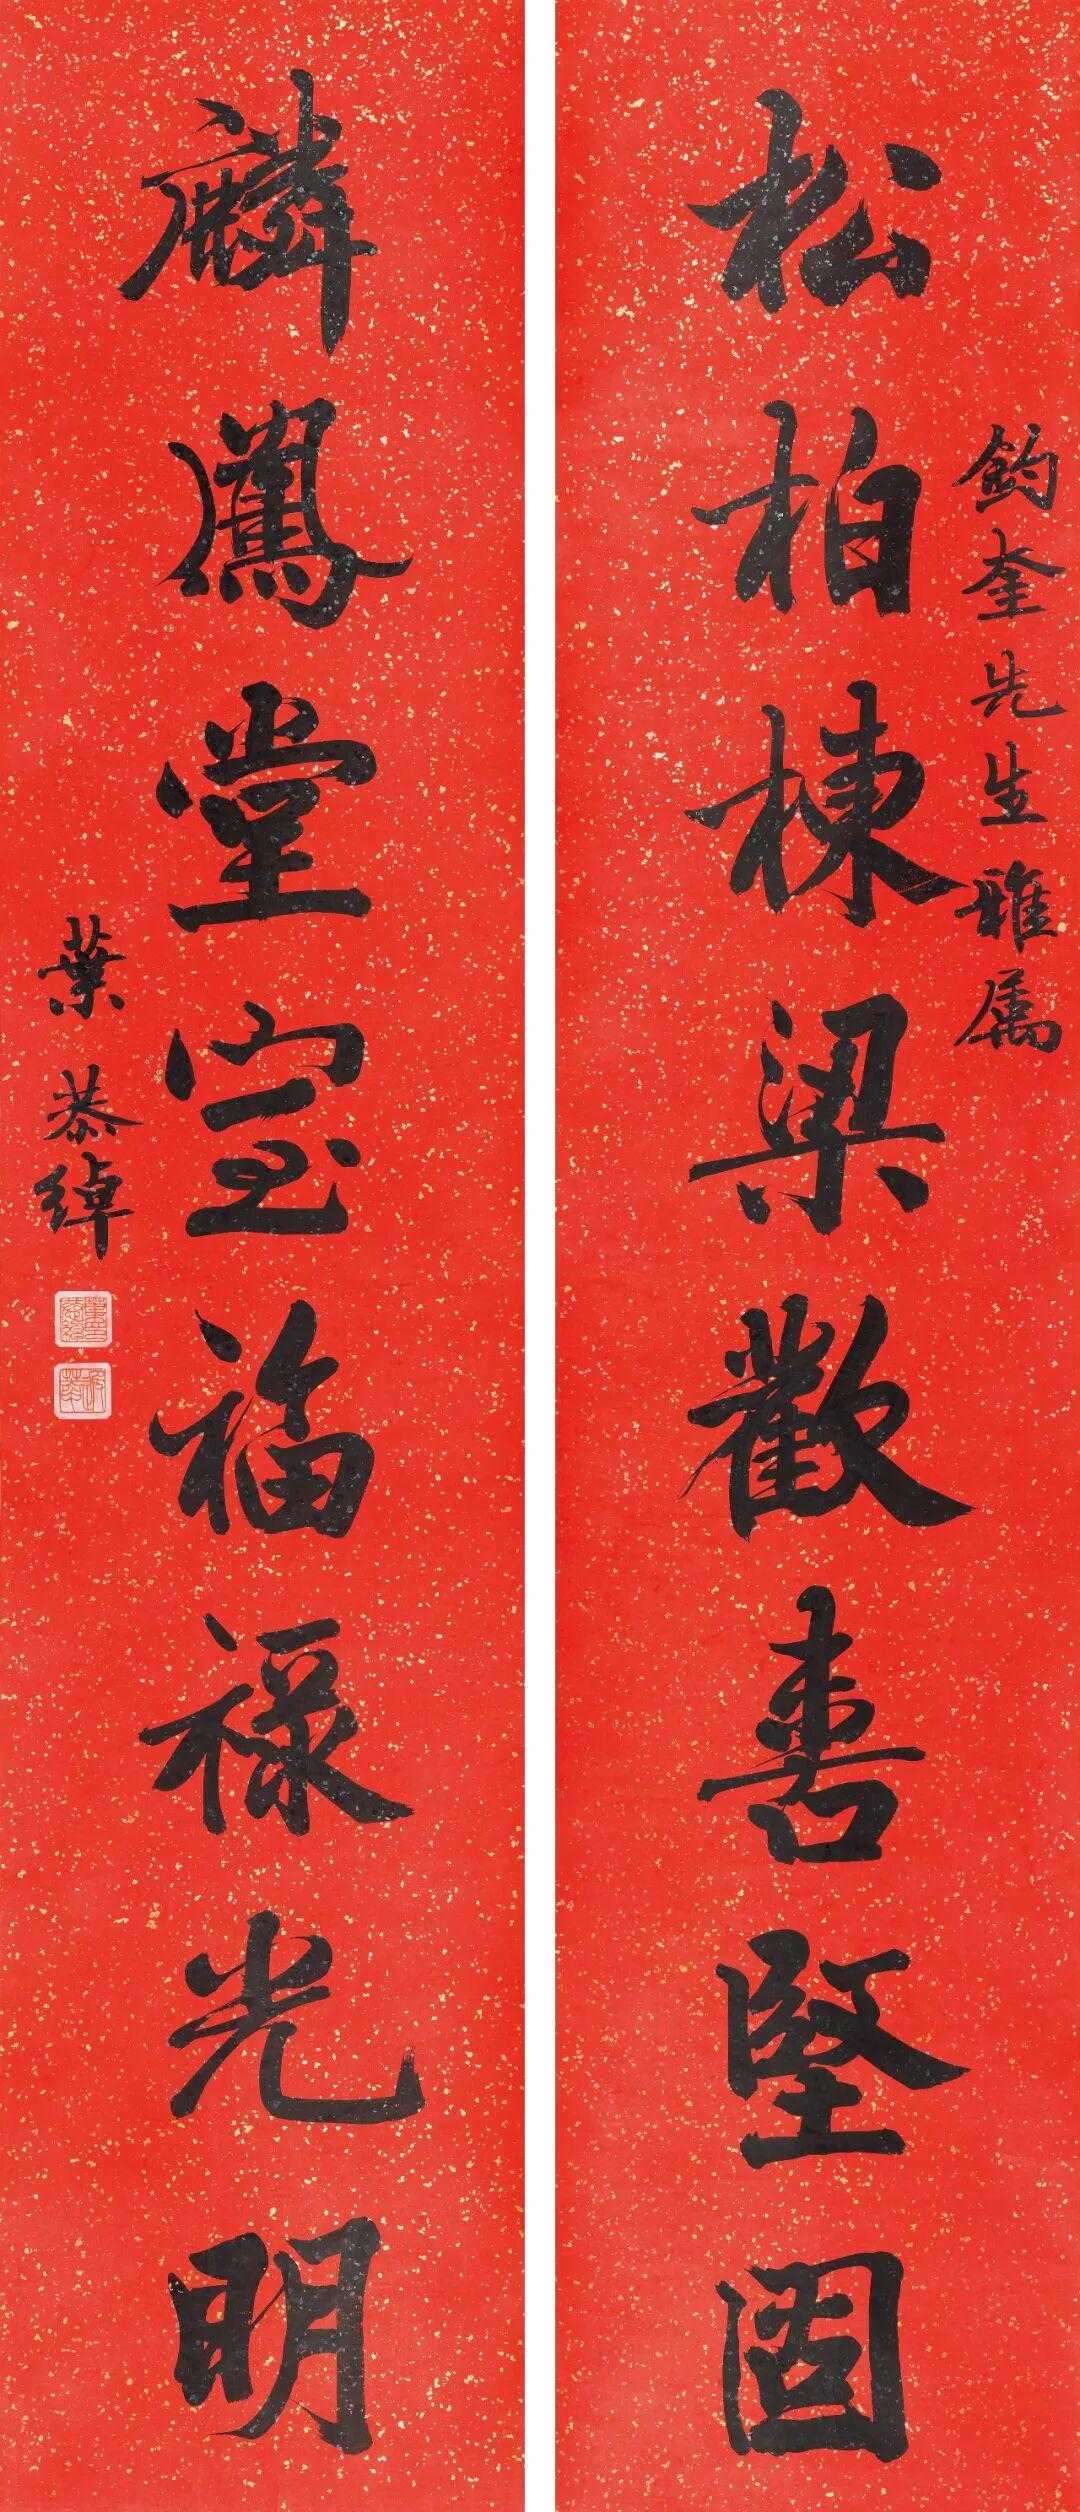 松柏棟梁歡喜堅固
鈞奎先生雅属
麟鳳堂室福祿光明
葉恭綽